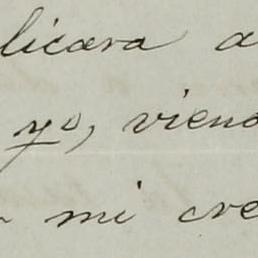 licara a
yo, viend
mi cre